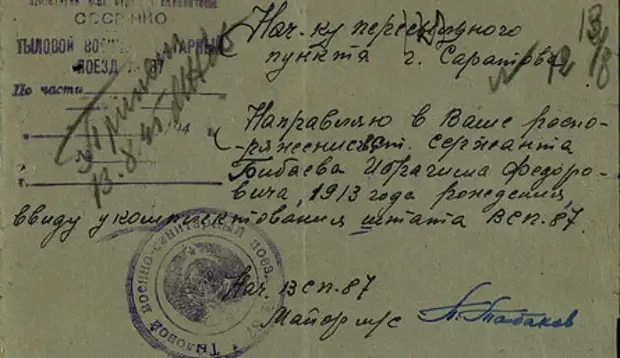 СССР НКО
ТЫЛОВОЙ ВОЕННО-САНИТАРНЫЙ
ПОЕЗД № 87
По части
194
г.
Принят
13.8.45
Нач-ку пересыльного
пункта г. Саратова
Направляю в Ваше распо-
ряжение ст. сержанта
Бибаева Ибрагима Федоро-
вича, 1913 года рождения,
ввиду укомплектования штата ВСП-87.
Нач. ВСП-87
Майор м/с
П. Табаков
Тыловой военно-санитарный поезд